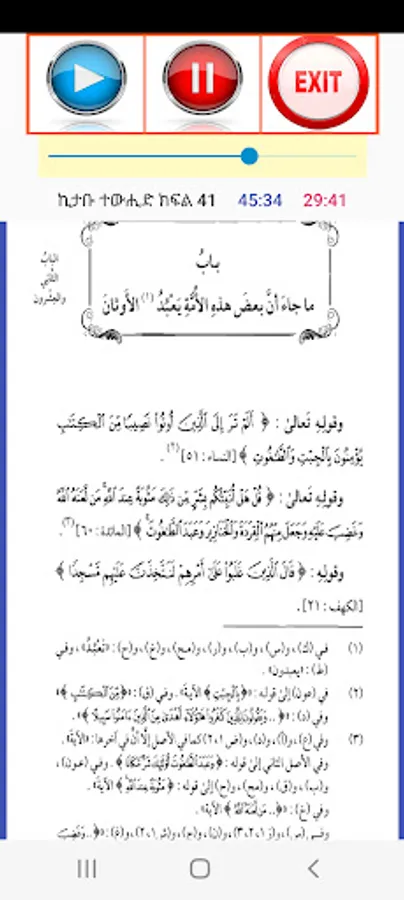 EXIT
ኪታቡ ተውሒድ ክፍል 41 45:34 29:41
البَابُ
الثَّاني
والعِشْرون
بابُ
ما جاءَ أنَّ بعضَ هذهِ الأُمَّةِ يَعْبُدُ (١) الأَوثانَ
وقولِهِ تَعالىٰ : ﴿ أَلَمْ تَرَ إِلَى ٱلَّذِينَ أُوتُوا۟ نَصِيبًا مِّنَ ٱلْكِتَٰبِ
يُؤْمِنُونَ بِٱلْجِبْتِ وَٱلطَّٰغُوتِ ﴾ [النساء : ٥١] (٢) .
وقولِهِ تَعالىٰ : ﴿ قُلْ هَلْ أُنَبِّئُكُم بِشَرٍّ مِّن ذَٰلِكَ مَثُوبَةً عِندَ ٱللَّهِ مَن لَّعَنَهُ ٱللَّهُ
وَغَضِبَ عَلَيْهِ وَجَعَلَ مِنْهُمُ ٱلْقِرَدَةَ وَٱلْخَنَازِيرَ وَعَبَدَ ٱلطَّٰغُوتَ ﴾ [المائدة : ٦٠] (٣) .
وقولِهِ : ﴿ قَالَ ٱلَّذِينَ غَلَبُوا۟ عَلَىٰٓ أَمْرِهِمْ لَنَتَّخِذَنَّ عَلَيْهِم مَّسْجِدًا ﴾
[الكهف : ٢١] .
(١) في (ك)، و(س)، و(ب)، و(ر)، و(مح)، و(غ)، و(ح) : «تَعْبُدُ»، وفي
(ط) : «يعبدون» .
(٢) في (عون) إلىٰ قوله : ﴿ بِٱلْجِبْتِ ﴾ الآيةَ . وفي (ق) : ﴿ مِّنَ ٱلْكِتَٰبِ ﴾
وفي (د) : ﴿ .. وَيَقُولُونَ لِلَّذِينَ كَفَرُوا۟ هَٰٓؤُلَآءِ أَهْدَىٰ مِنَ ٱلَّذِينَ ءَامَنُوا۟ سَبِيلًا ﴾ .
(٣) وفي (ع)، و(أ)، و(د)، و(ض ١، ٢) كما في الأصل إلَّا أنَّ في آخرها : «الآية» .
وفي الأصل الثاني إلىٰ قوله : ﴿ وَعَبَدَ ٱلطَّٰغُوتَ أُو۟لَٰٓئِكَ شَرٌّ مَّكَانًا ﴾ . وفي (عون)،
و(ب)، و(ق)، و(مح)، و(ح) إلىٰ قوله : ﴿ مَثُوبَةً عِندَ ٱللَّهِ ﴾ الآيةَ .
وفي (غ) : ﴿ .. مَن لَّعَنَهُ ٱللَّهُ ﴾ الآية .